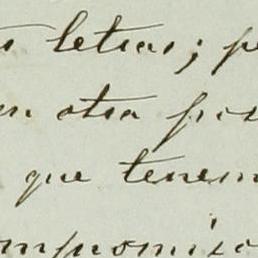 letras; p
en otra pers
que tenem
ompromiso